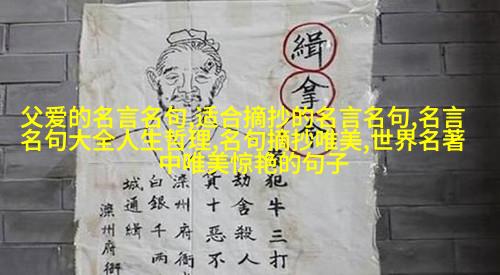 父爱的名言名句,适合摘抄的名言名句,名言
名句大全人生哲理,名句摘抄唯美,世界名著
中唯美惊艳的句子
緝拿
犯牛三打
劫舍殺人
十惡不
滦州府衙
白銀千两
城通緝
滦州府衙